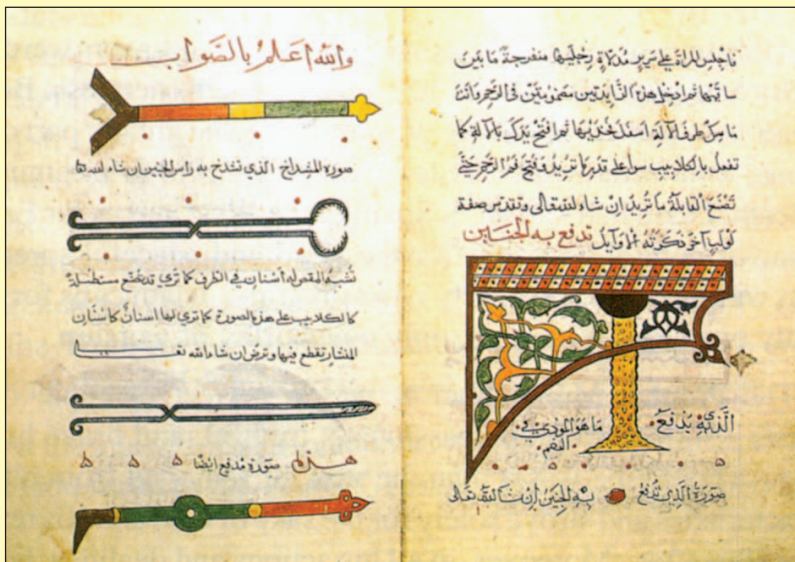 فاجلس المراة على سرير مدلاة رجليها منفرجة ما بين
ساقيها ثم ادخل هذه الزايدتين مضمومتين في الرحم وانت
ماسك طرف الالة اسفل فخذيها ثم افتح يدك بالالة كما
تفعل بالكلاليب سوا على قدر ما تريد وتفتح فم الرحم حتى
تصنع القابلة ما تريد ان شاء الله تعالى وتقدس صفة
لولب آخر ذكرته الاوايل تدفع به الجنين
الذي يدفع ما هو المودي في
الفم
صورة الذي تدفع به الجنين ان شا الله تعالى
والله اعلم بالصواب
صورة المشداخ الذي تشدخ به راس الجنين ان شاء الله تعا
تشبه المقص له اسنان في الطرف كما ترى قد تصنع مستطيلة
كالكلاليب على هذه الصورة كما ترى لها اسنان كاسنان
المنشار تقطع فيها وترض ان شاء الله تعا
هذا صورة مدفع ايضا ه ه ه